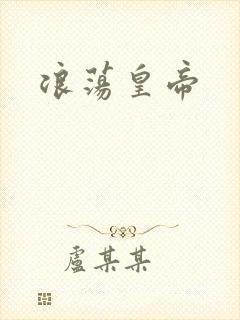 浪蕩皇帝
盧某某